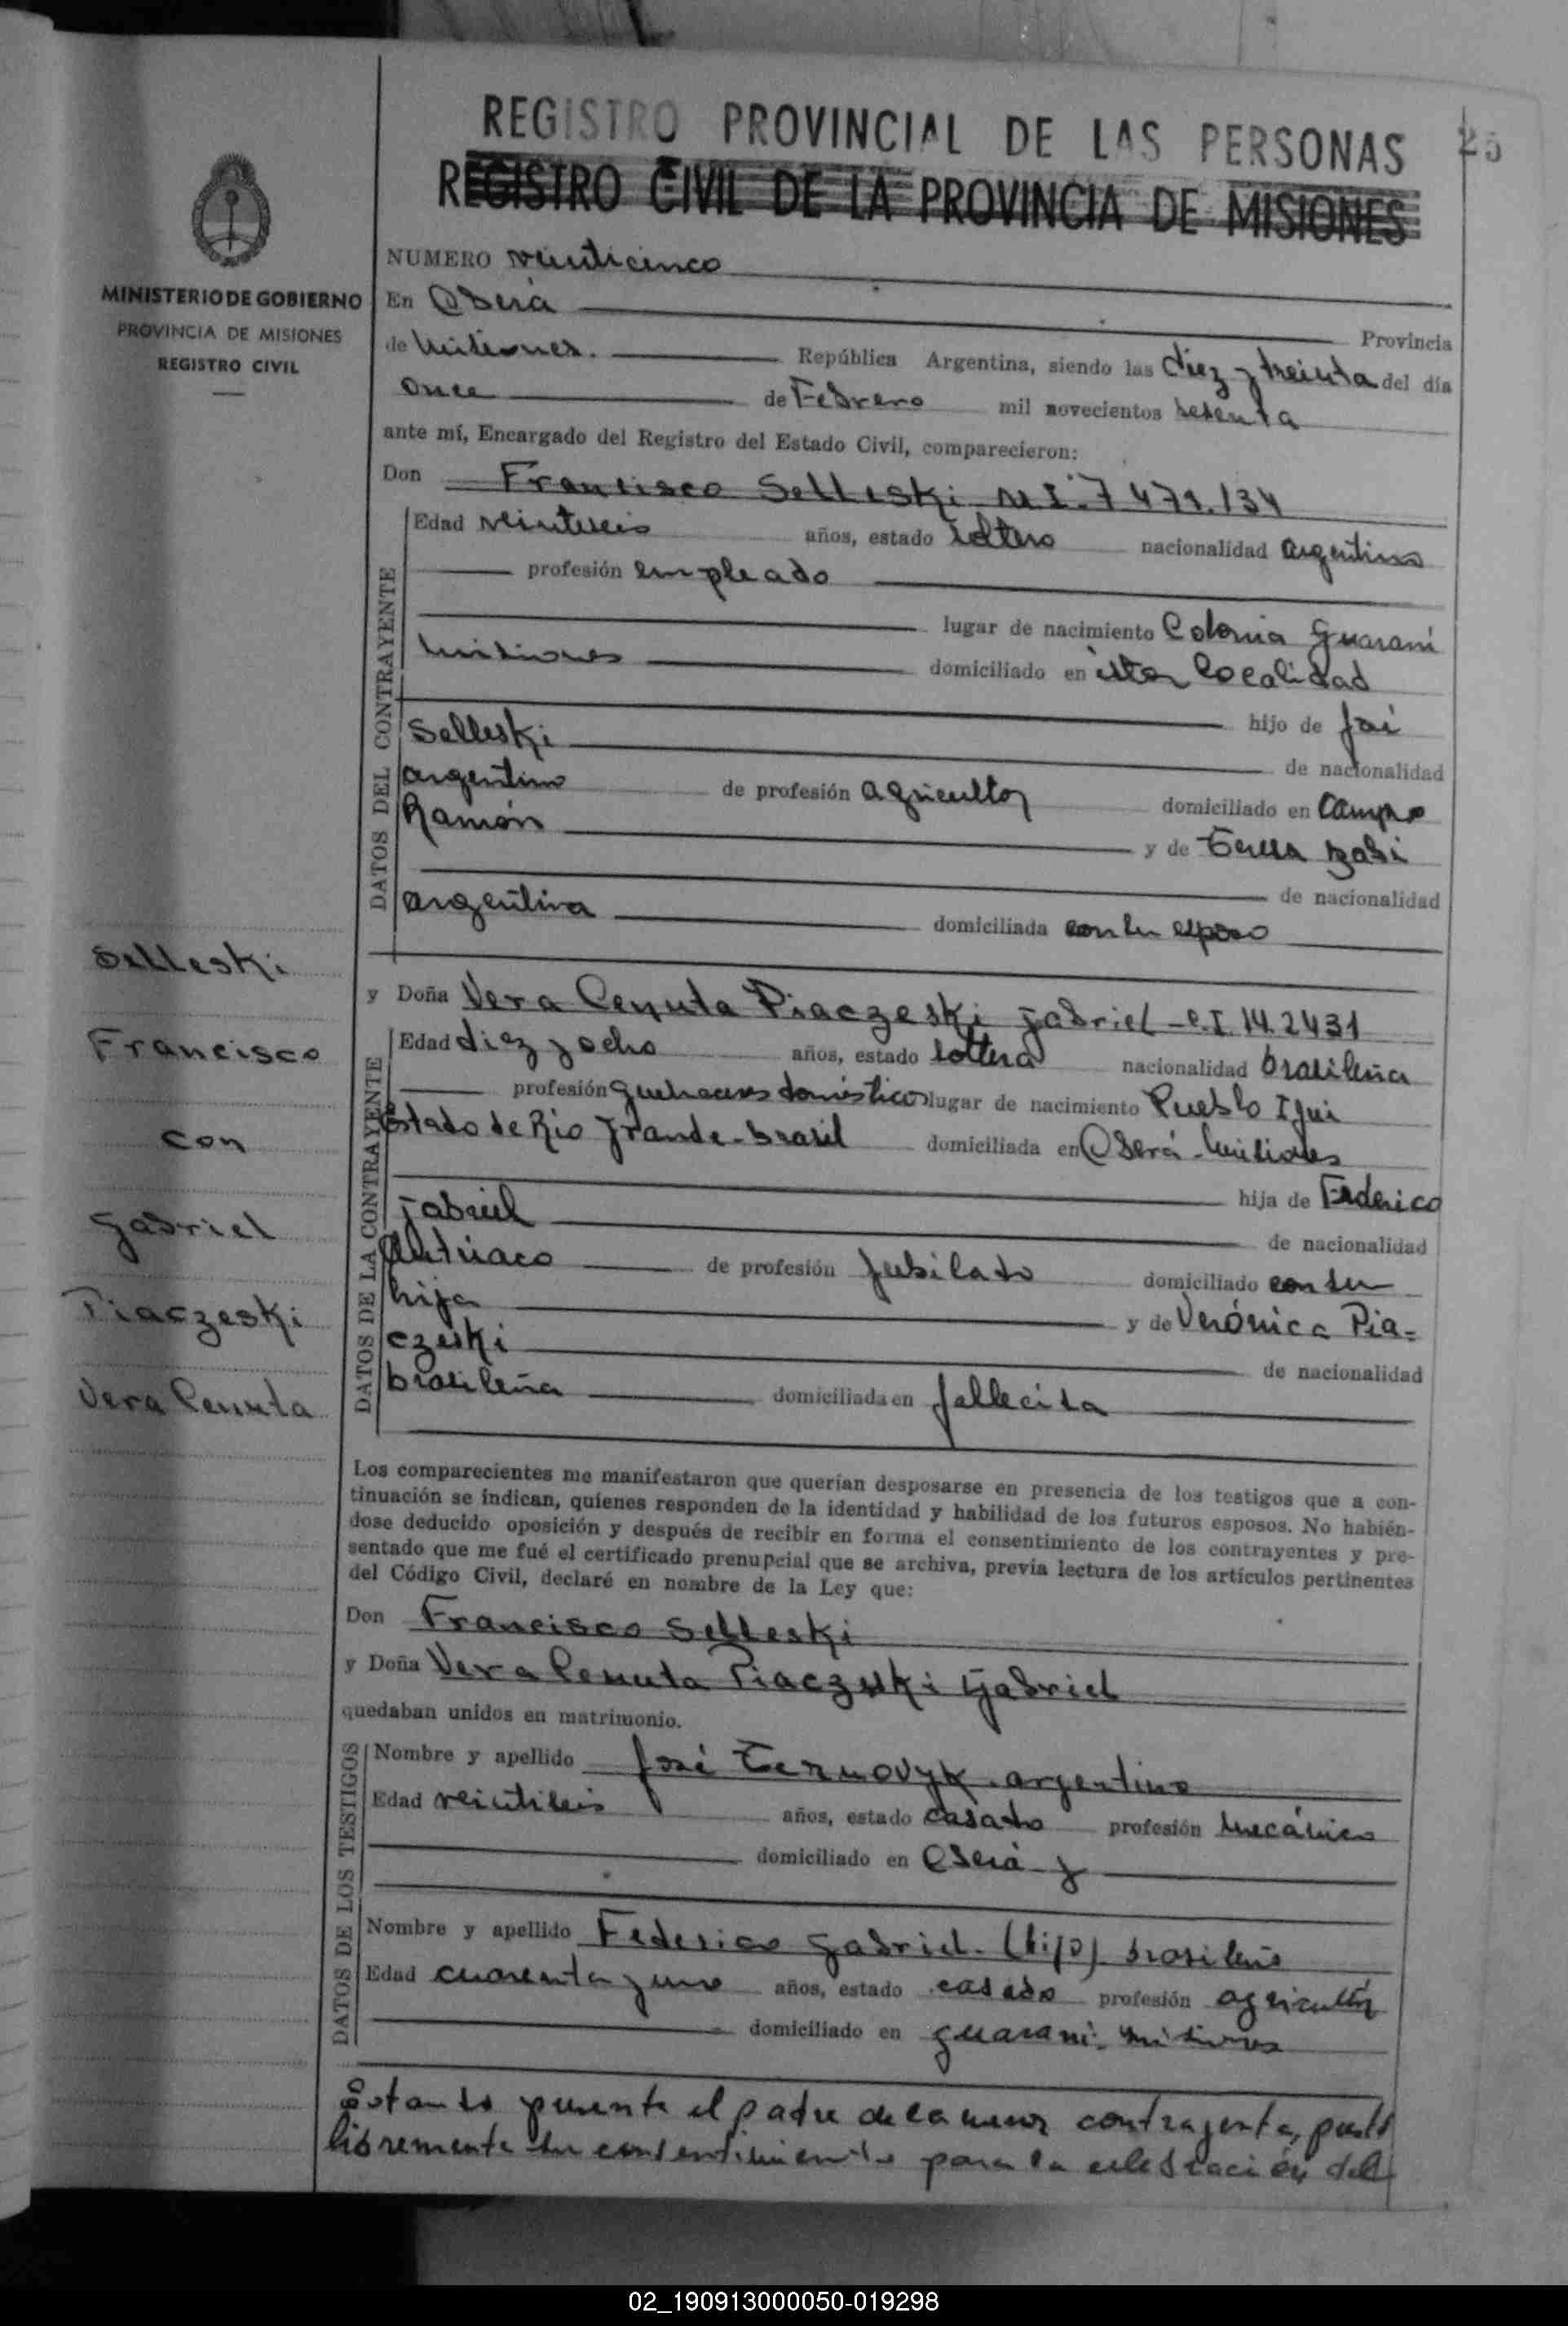 REGISTRO PROVINCIAL DE LAS PERSONAS
25
REGISTRO CIVIL DE LA PROVINCIA DE MISIONES
MINISTERIO DE GOBIERNO
PROVINCIA DE MISIONES
REGISTRO CIVIL
NUMERO veinticinco
En Oberá Provincia
de Misiones. República Argentina, siendo las diez y treinta del día
once de Febrero mil novecientos setenta
ante mí, Encargado del Registro del Estado Civil, comparecieron:
Don Francisco Selleski M.I. 7.471.134
DATOS DEL CONTRAYENTE
Edad veintiseis años, estado soltero nacionalidad argentino
profesión empleado
lugar de nacimiento Colonia Guaraní
Misiones domiciliado en ésta localidad
hijo de José
Selleski de nacionalidad
argentino de profesión agricultor domiciliado en Campo
Ramón y de Teresa
de nacionalidad
argentina domiciliada con su esposo
y Doña Vera Piaczeski Gabriel - C.I. 14.2431
DATOS DE LA CONTRAYENTE
Edad diez y ocho años, estado soltera nacionalidad brasileña
profesión quehaceres domésticos lugar de nacimiento Pueblo Ijui
Estado de Rio Grande - Brasil domiciliada en Oberá - Misiones
hija de Federico
Gabriel de nacionalidad
Austriaco de profesión Jubilado domiciliado con su
hija y de Verónica Pia=
czeski de nacionalidad
brasileña domiciliada en fallecida
Selleski
Francisco
con
Gabriel
Piaczeski
Vera
Los comparecientes me manifestaron que querían desposarse en presencia de los testigos que a con-
tinuación se indican, quienes responden de la identidad y habilidad de los futuros esposos. No habién-
dose deducido oposición y después de recibir en forma el consentimiento de los contrayentes y pre-
sentado que me fué el certificado prenupcial que se archiva, previa lectura de los artículos pertinentes
del Código Civil, declaré en nombre de la Ley que:
Don Francisco Selleski
y Doña Vera Piaczeski Gabriel
quedaban unidos en matrimonio.
DATOS DE LOS TESTIGOS
Nombre y apellido José argentino
Edad veintiseis años, estado casado profesión mecánico
domiciliado en Oberá y
Nombre y apellido Federico Gabriel (hijo) brasileño
Edad cuarenta y uno años, estado casado profesión agricultor
domiciliado en Guaraní - Misiones
Estando presente el padre de la menor contrayente, prestó
libremente su consentimiento para la celebración del
02_190913000050-019298